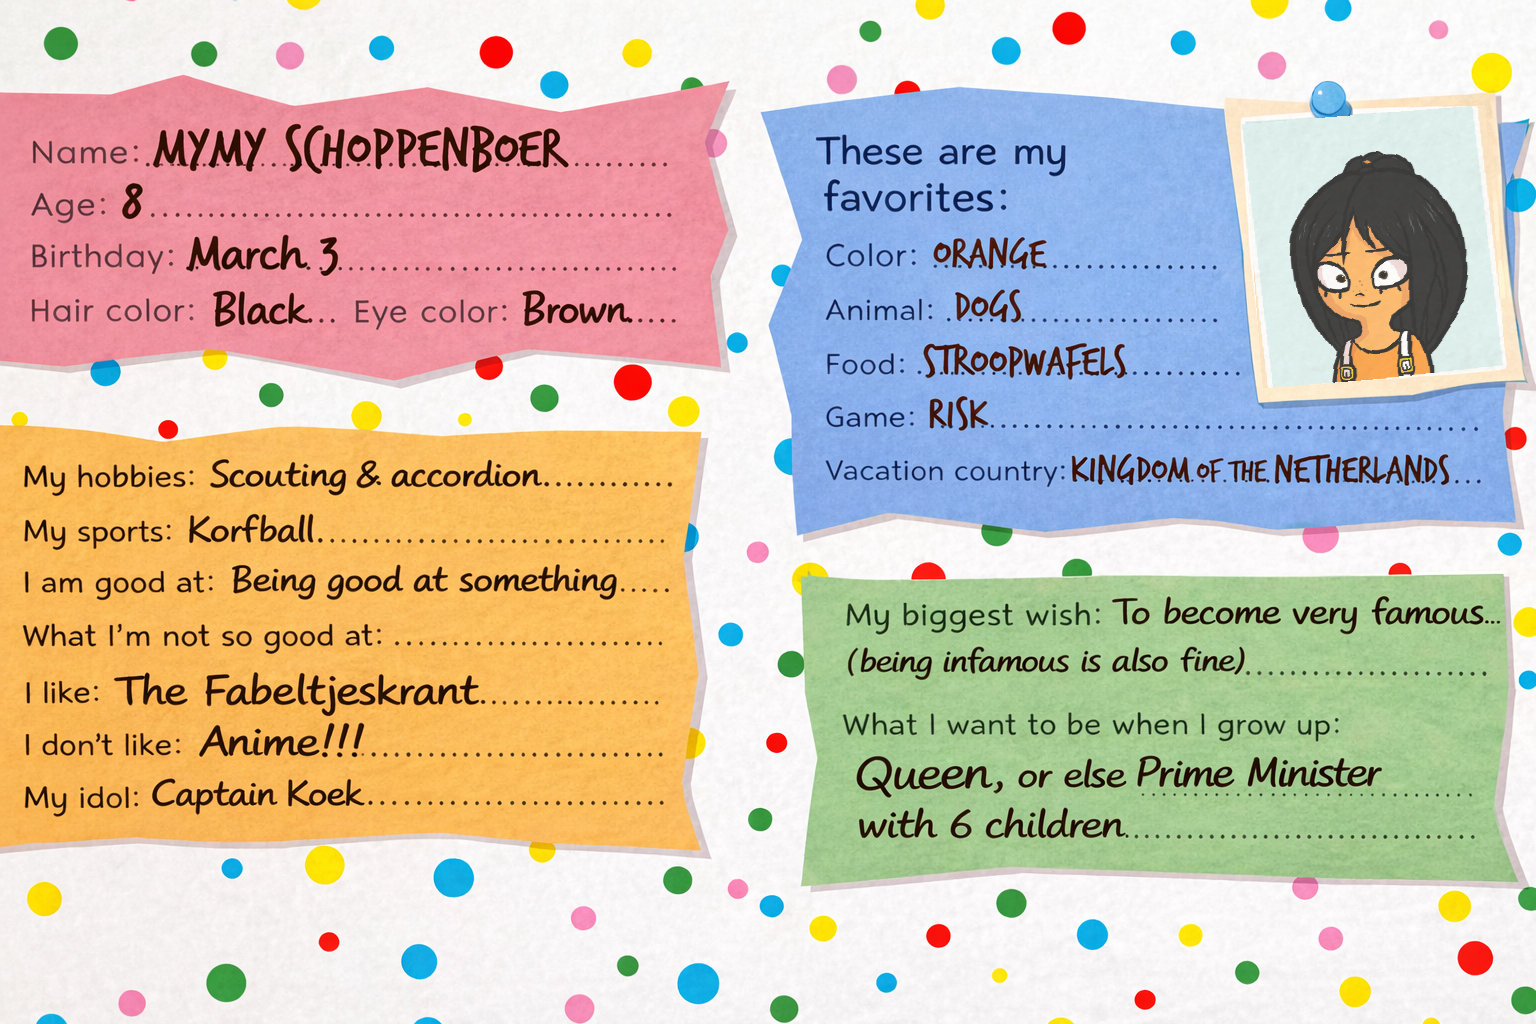 Name: MYMY SCHOPPENBOER
Age: 8
Birthday: March 3
Hair color: Black Eye color: Brown
My hobbies: Scouting & accordion
My sports: Korfball
I am good at: Being good at something
What I'm not so good at:
I like: The Fabeltjeskrant
I don't like: Anime!!!
My idol: Captain Koek
These are my
favorites:
Color: ORANGE
Animal: DOGS
Food: STROOPWAFELS
Game: RISK
Vacation country: KINGDOM OF THE NETHERLANDS
My biggest wish: To become very famous...
(being infamous is also fine)
What I want to be when I grow up:
Queen, or else Prime Minister
with 6 children